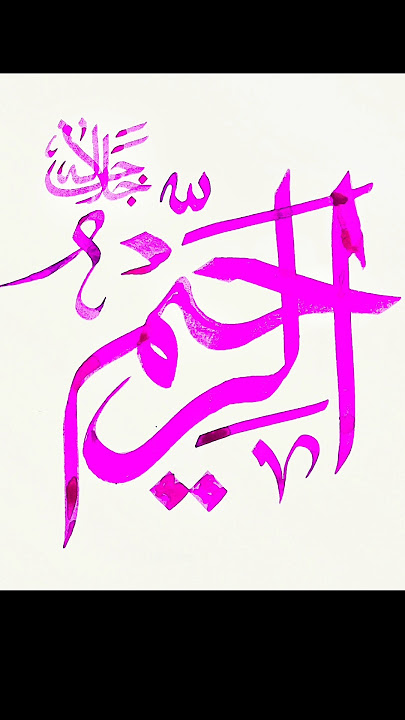 جل جلاله
الرحيم